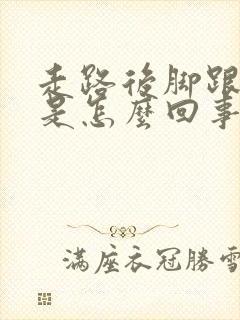 走路後脚跟
是怎麼回事
滿座衣冠勝雪